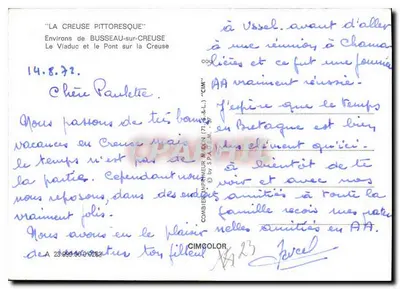 "LA CREUSE PITTORESQUE"
Environs de BUSSEAU-sur-CREUSE
Le Viaduc et le Pont sur la Creuse
14.8.72.
Chère Paulette.
Nous passons de très bonnes
vacances en Creuse mais
le temps n'est pas de
la partie. Cependant nous
nous reposons, dans des endroits
vraiment jolis.
Nous avons eu le plaisir
de rencontrer ton filleul
à Ussel. avant d'aller
à une réunion à Chama-
lières et ce fut une journée
AA vraiment réussie.
J'espère que le temps
en Bretagne est bien
plus clément qu'ici.
à bientôt de te
voir et avec nos
amitiés à toute la
famille reçois mes frater-
nelles amitiés en AA.
CIMCOLOR
"CIM"